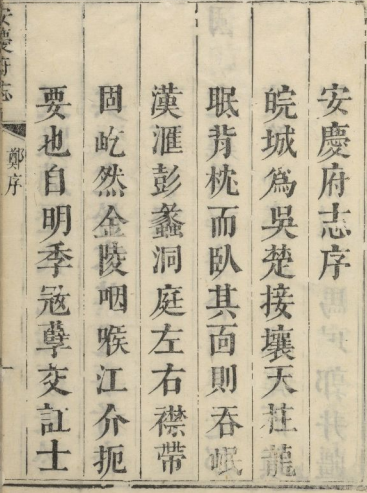 安慶府志序
皖城為吳楚接壤天柱龍
眠背枕而臥其面則吞岷
漢滙彭蠡洞庭左右襟帶
固屹然金陵咽喉江介扼
要也自明季寇孽交訌士
安慶府志
鄭序
一